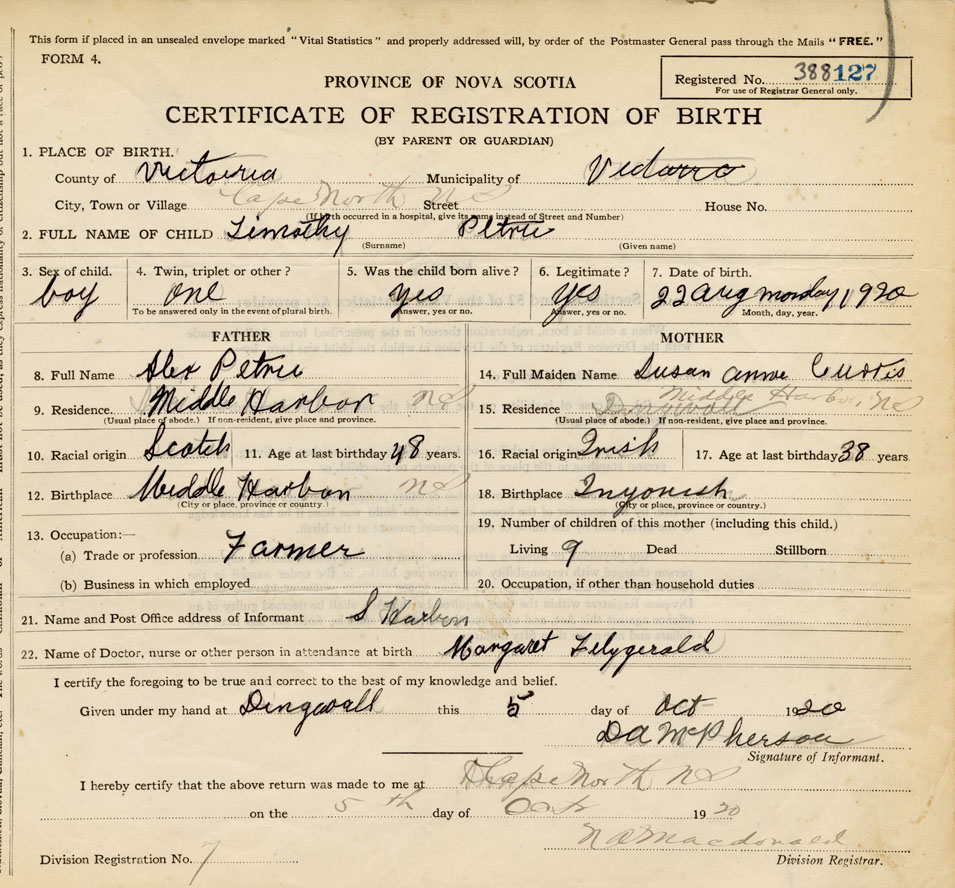 This form if placed in an unsealed envelope marked "Vital Statistics" and properly addressed will, by order of the Postmaster General pass through the Mails "FREE."
FORM 4.
Registered No. 388127
For use of Registrar General only.
PROVINCE OF NOVA SCOTIA
CERTIFICATE OF REGISTRATION OF BIRTH
(BY PARENT OR GUARDIAN)
1. PLACE OF BIRTH.
County of Victouria Municipality of
City, Town or Village Cape North N S Street House No.
(If birth occurred in a hospital, give its name instead of Street and Number)
2. FULL NAME OF CHILD Timothy Petrie
(Surname) (Given name)
3. Sex of child. 4. Twin, triplet or other? 5. Was the child born alive? 6. Legitimate? 7. Date of birth.
boy one yes yes 22 aug monday 1920
To be answered only in the event of plural birth. Answer, yes or no. Answer, yes or no. Month, day, year.
FATHER MOTHER
8. Full Name Alex Petrie 14. Full Maiden Name Susan anne Curtis
9. Residence. Middle Harbor NS 15. Residence Dingwall Middle Harbor, NS
(Usual place of abode.) If non-resident, give place and province. (Usual place of abode.) If non-resident, give place and province.
10. Racial origin Scotch 11. Age at last birthday 48 years. 16. Racial origin Irish 17. Age at last birthday 38 years
12. Birthplace Middle Harbor NS 18. Birthplace Ingonish
(City or place, province or country.) (City or place, province or country.)
13. Occupation:— 19. Number of children of this mother (including this child.)
(a) Trade or profession Farmer Living 9 Dead Stillborn
(b) Business in which employed 20. Occupation, if other than household duties
21. Name and Post Office address of Informant S Harbor
22. Name of Doctor, nurse or other person in attendance at birth Margaret Fitzgerald
I certify the foregoing to be true and correct to the best of my knowledge and belief.
Given under my hand at Dingwall this 5 day of Oct 1920
D A McPherson
Signature of Informant.
I hereby certify that the above return was made to me at Cape North NS
on the 5th day of 1920
Macdonald
Division Registration No. 7 Division Registrar.